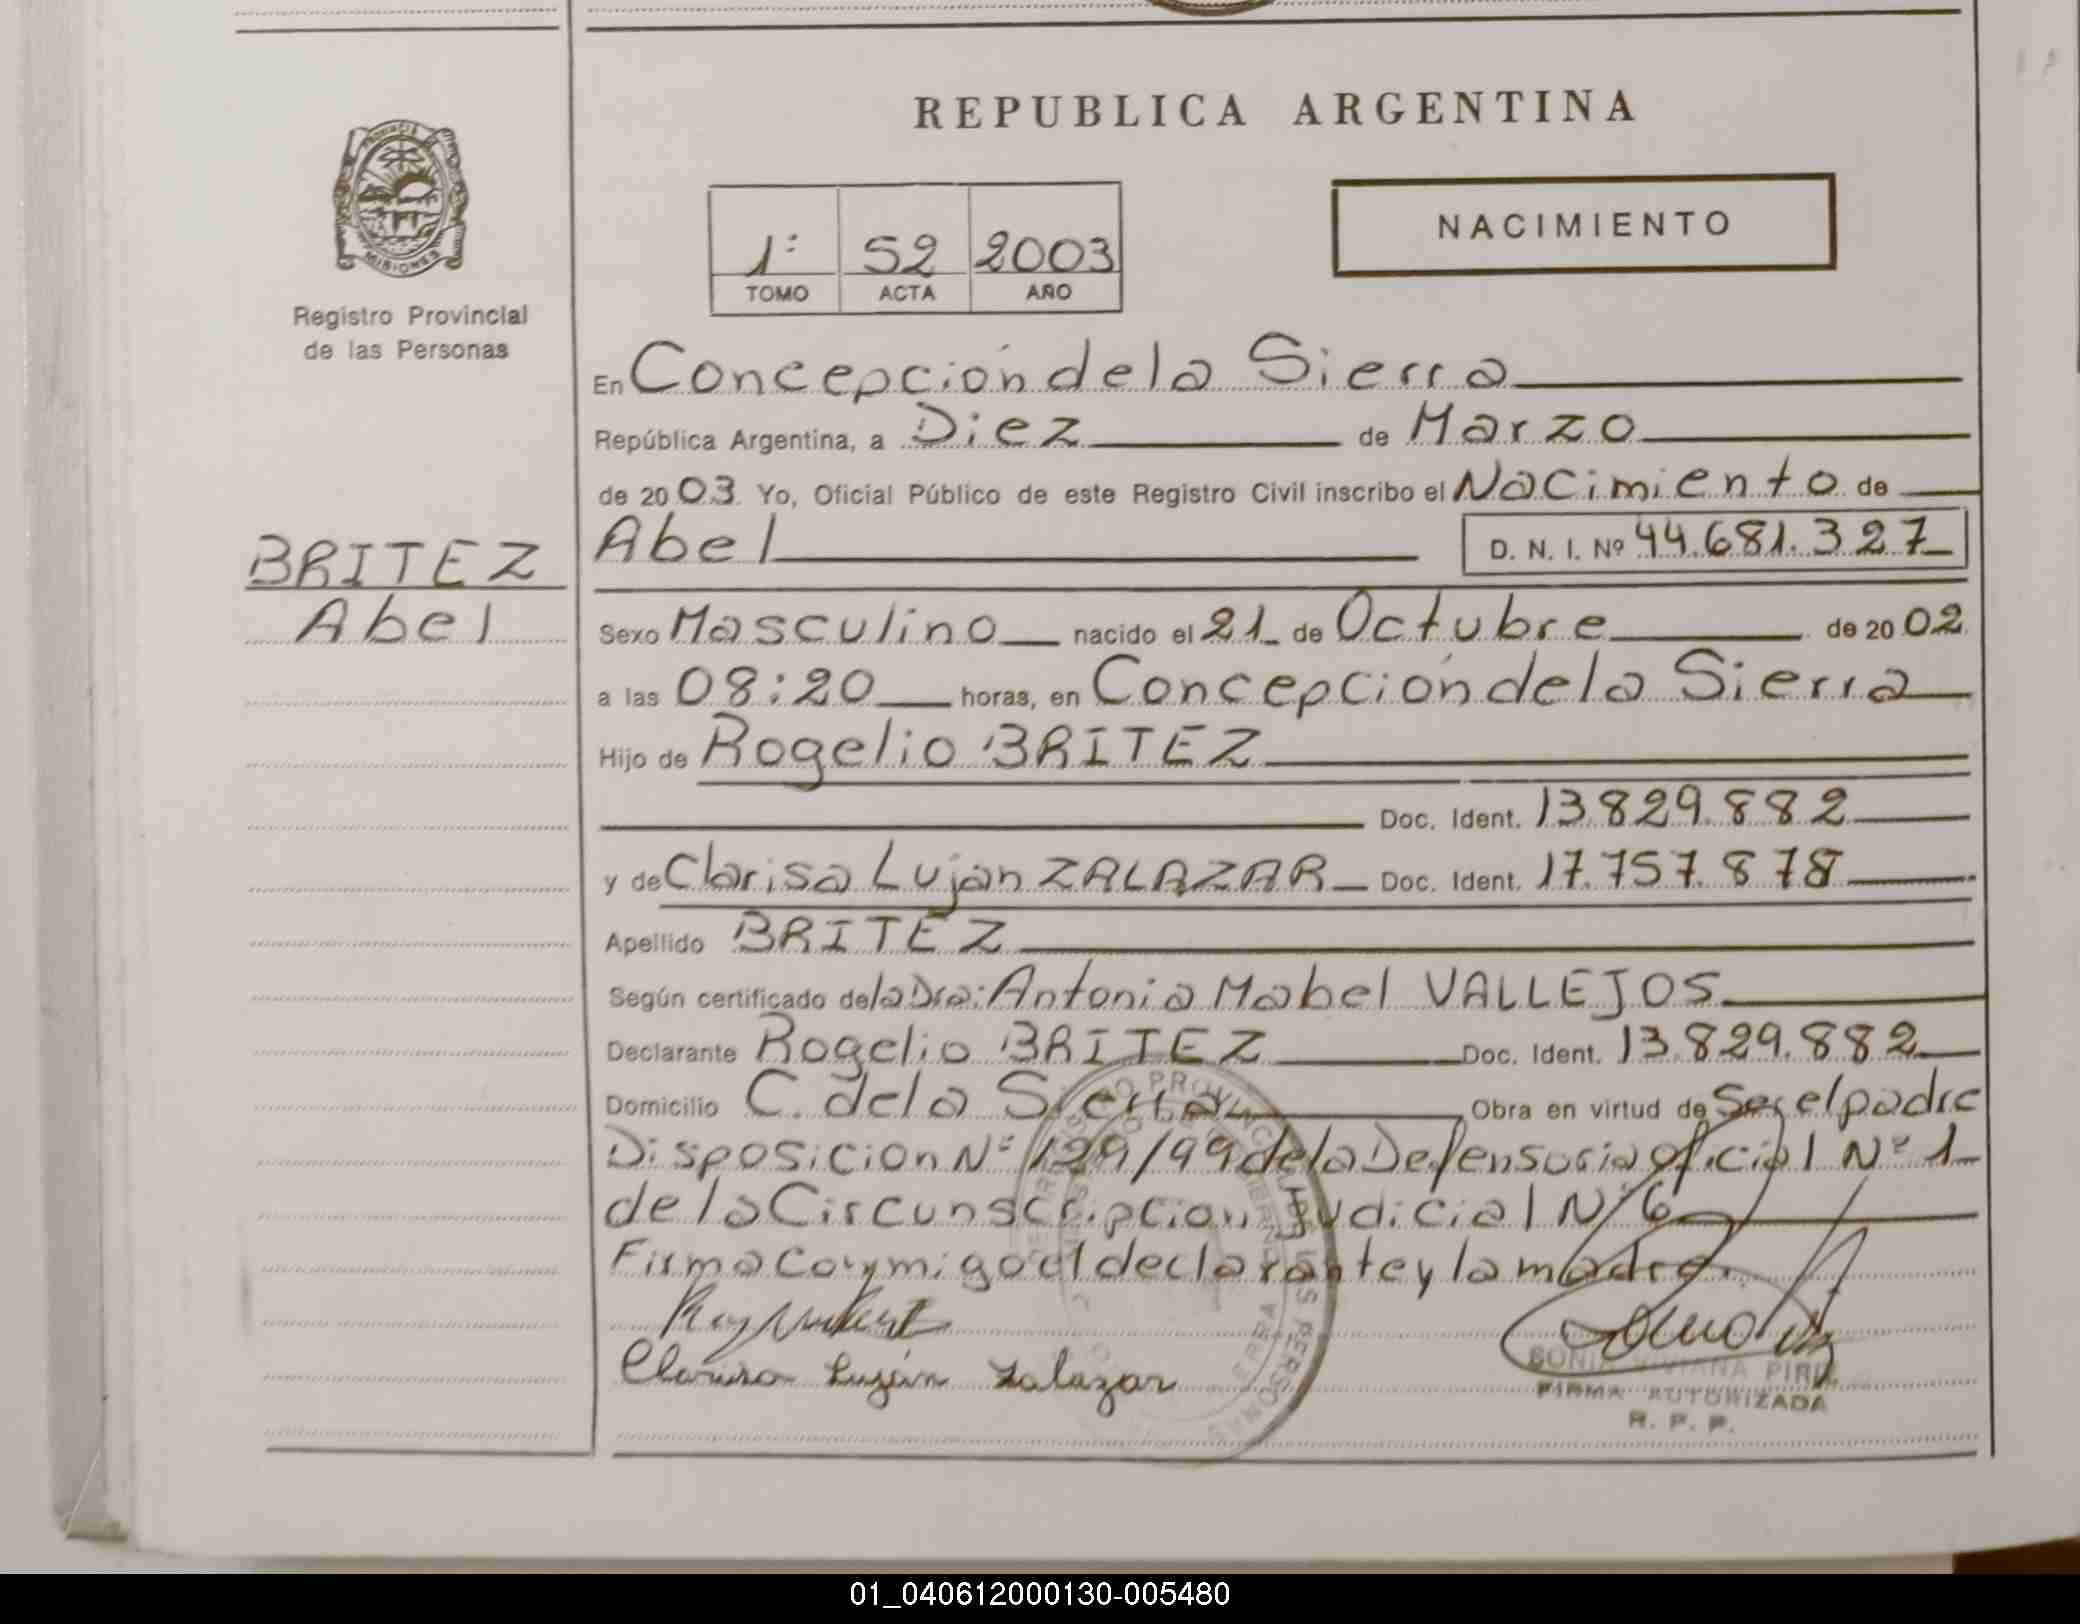 REPUBLICA ARGENTINA
PROVINCIA
MISIONES
Registro Provincial
de las Personas
1º 52 2003
TOMO ACTA AÑO
NACIMIENTO
En Concepción de la Sierra
República Argentina, a Diez de Marzo
de 2003. Yo, Oficial Público de este Registro Civil inscribo el Nacimiento de
BRITEZ
Abel
Abel D. N. I. Nº 44.681.327
Sexo Masculino nacido el 21 de Octubre de 2002
a las 08:20 horas, en Concepción de la Sierra
Hijo de Rogelio BRITEZ
Doc. Ident. 13.829.882
y de Clarisa Lujan ZALAZAR Doc. Ident. 17.757.878
Apellido BRITEZ
Según certificado de la Dra: Antonia Mabel VALLEJOS
Declarante Rogelio BRITEZ Doc. Ident. 13.829.882
Domicilio C. de la Sierra Obra en virtud de Ser el padre
Disposicion Nº 129/99 de la Defensoria oficial Nº 1
de la Circunscripcion Judicial Nº 6
Firma conmigo el declarante y la madre.
Clarisa Luján Zalazar
SONIA VIVIANA
FIRMA AUTORIZADA
R. P. P.
01_040612000130-005480